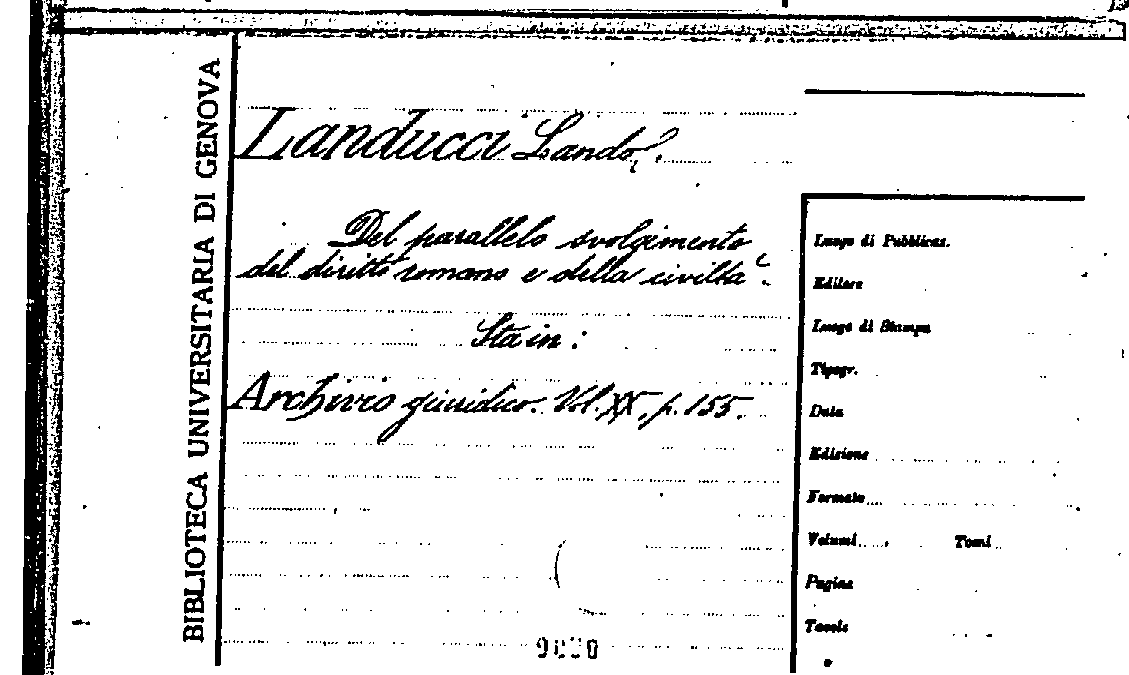 BIBLIOTECA UNIVERSITARIA DI GENOVA
Landucci Lando.
Del parallelo svolgimento
del diritto romano e della civiltà.
Sta in:
Archivio giuridico. Vol. XX, p. 155.
Luogo di Pubblicaz.
Editore
Luogo di Stampa
Tipogr.
Data
Edizione
Formato
Volumi Tomi
Pagine
Tavole